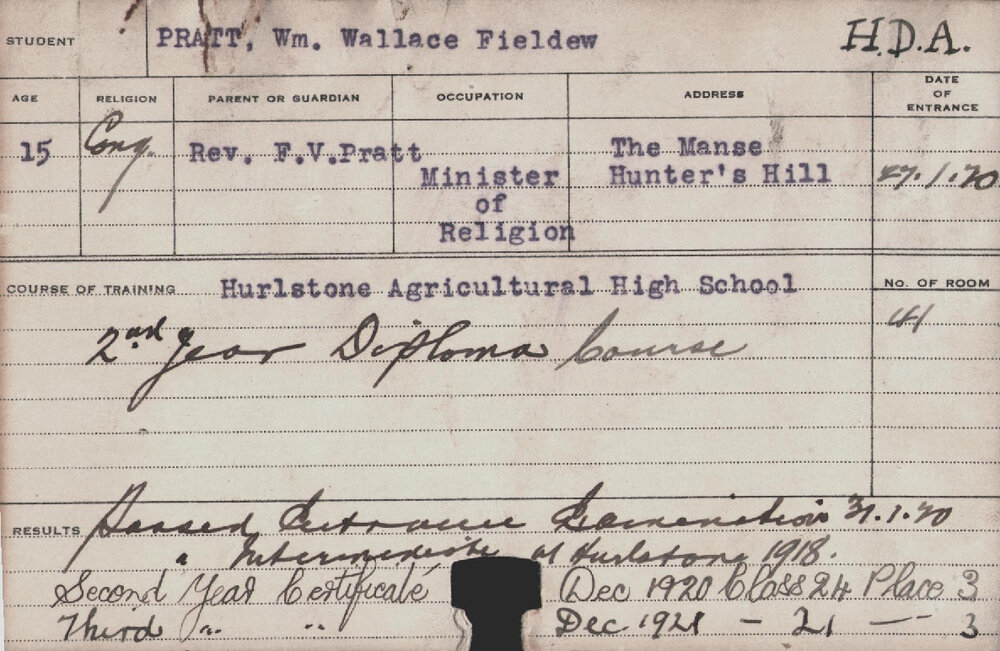 STUDENT PRATT, Wm. Wallace Fieldew H.D.A.
AGE RELIGION PARENT OR GUARDIAN OCCUPATION ADDRESS DATE OF ENTRANCE
15 Cong. Rev. F.V.Pratt Minister of Religion The Manse Hunter's Hill 27.1.20
COURSE OF TRAINING Hurlstone Agricultural High School No. OF ROOM
2nd Year Diploma Course 41
RESULTS Passed Entrance Examination 31.1.20
" Intermediate at Hurlstone 1918.
Second Year Certificate Dec 1920 Class 24 Place 3
Third " " Dec. 1921 — 21 — 3